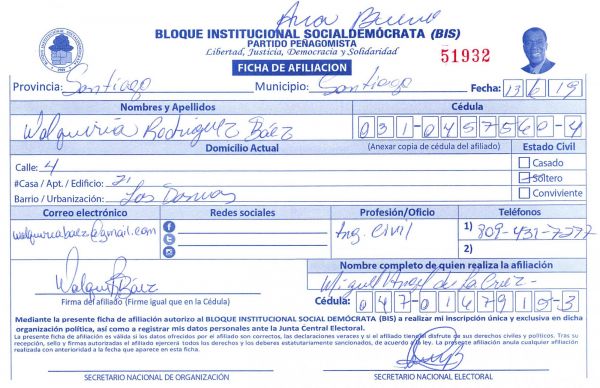 Ana Bueno
BLOQUE INSTITUCIONAL SOCIALDEMÓCRATA (BIS)
PARTIDO PEÑAGOMISTA
Libertad, Justicia, Democracia y Solidaridad
51932
FICHA DE AFILIACION
Provincia: Santiago Municipio: Santiago Fecha: 13/6/19
Nombres y Apellidos Cédula
Walquiria Rodríguez Báez 031-0457560-4
Domicilio Actual (Anexar copia de cédula del afiliado) Estado Civil
Calle: 4 Casado
#Casa / Apt. / Edificio: 21 Soltero
Barrio / Urbanización: Las Conviviente
Correo electrónico Redes sociales Profesión/Oficio Teléfonos
walquiriabaez@gmail.com Ing. Civil 1) 809-431-7277
2)
Nombre completo de quien realiza la afiliación
Walqui Báez Miguel Angel de La Cruz
Firma del afiliado (Firme igual que en la Cédula) Cédula: 047-0167915-3
Mediante la presente ficha de afiliación autorizo al BLOQUE INSTITUCIONAL SOCIAL DEMÓCRATA (BIS) a realizar mi inscripción única y exclusiva en dicha
organización política, así como a registrar mis datos personales ante la Junta Central Electoral.
La presente ficha de afiliación es válida si los datos ofrecidos por el afiliado son correctos, las declaraciones veraces y si el afiliado tiene el disfrute de sus derechos civiles y políticos. Tras su
recepción, sello y firmas autorizadas el afiliado ejercerá todos los derechos y los deberes estatutariamente sancionados, de acuerdo a la ley. La presente afiliación anula cualquier afiliación
realizada con anterioridad a la fecha que aparece en esta ficha.
SECRETARIO NACIONAL DE ORGANIZACIÓN SECRETARIO NACIONAL ELECTORAL